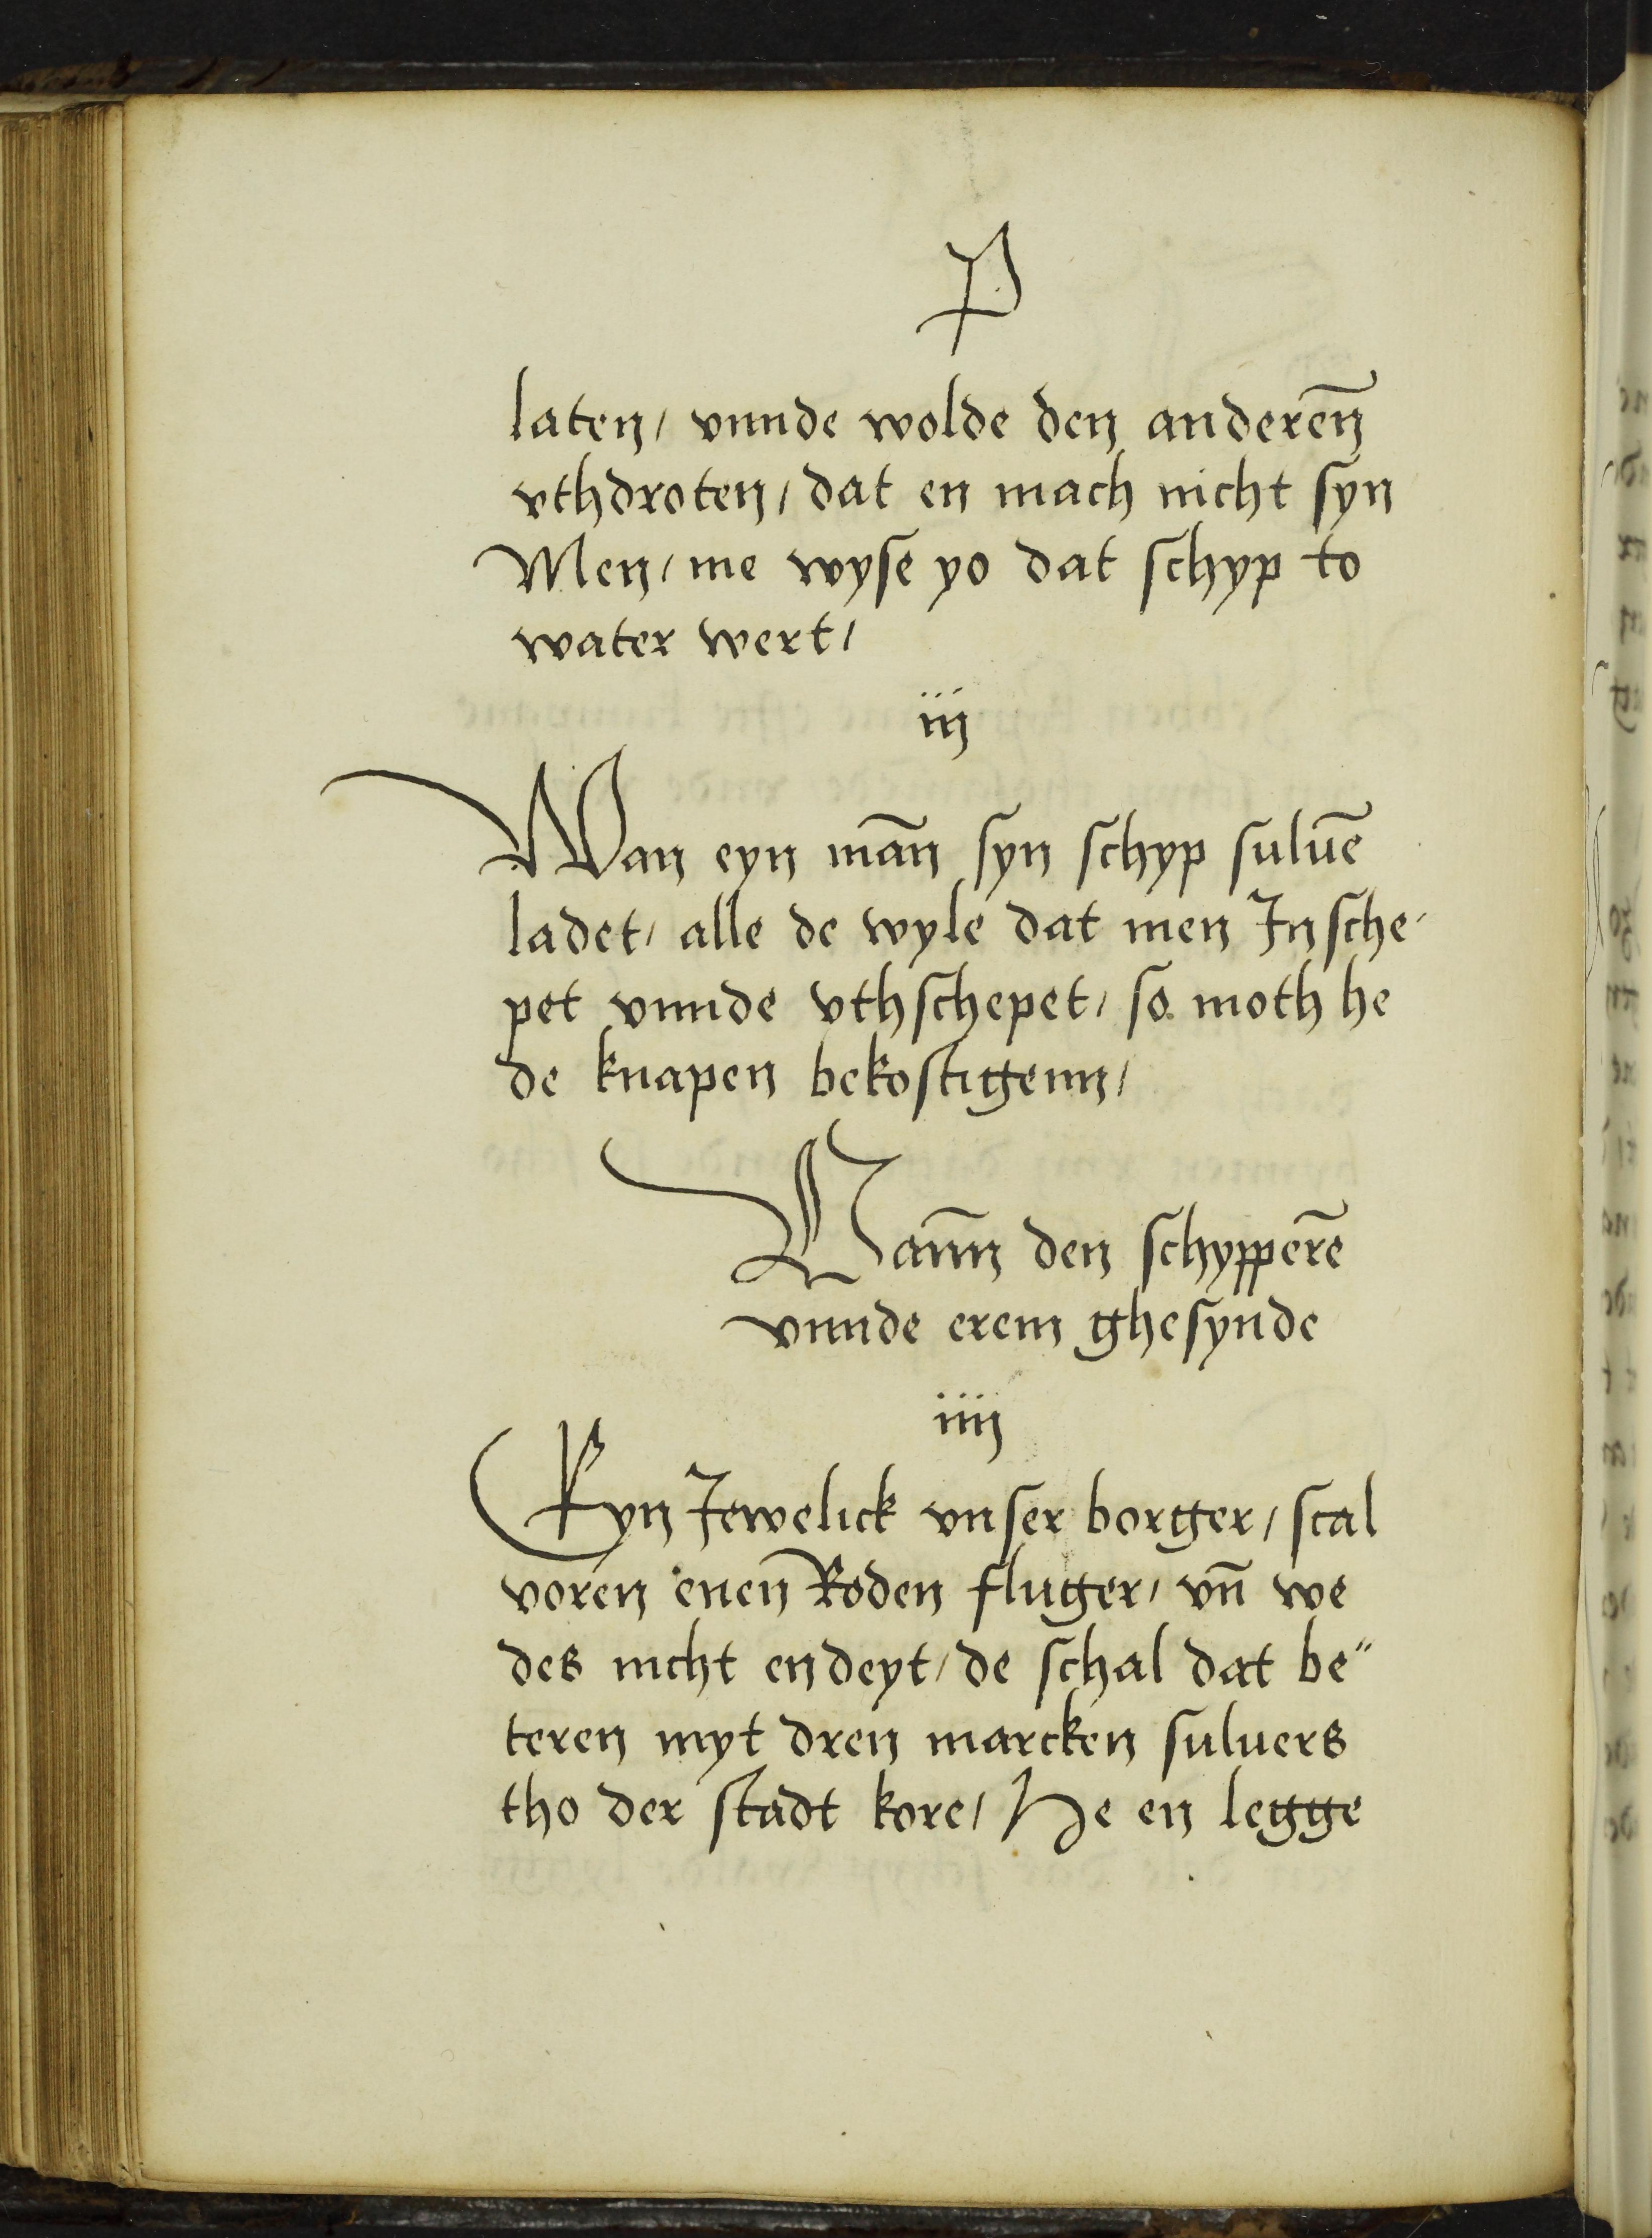 P
laten/ vnnde wolde den anderēn
vthdroten/ dat en mach nicht syn
Men/ me wyse yo dat schyp to
water wert/
iij
Wan eyn mān syn schyp suluē
ladet/ alle de wyle dat men Insche/
pet vnnde vthschepet/ so moth he
de knapen bekostigenn/
Vann den schypperē
vnnde erem ghesynde
iiij
Eyn Jewelick vnser borger/ scal
voren enen Roden fluger/ vn̄ we
des nicht en deyt/ de schal dat be"
teren myt dren marcken suluers
tho der stadt kore/ He en legge